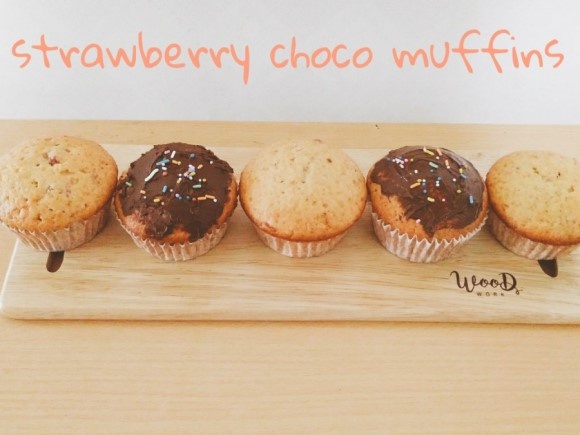 strawberry choco muffins
WooD
WORK